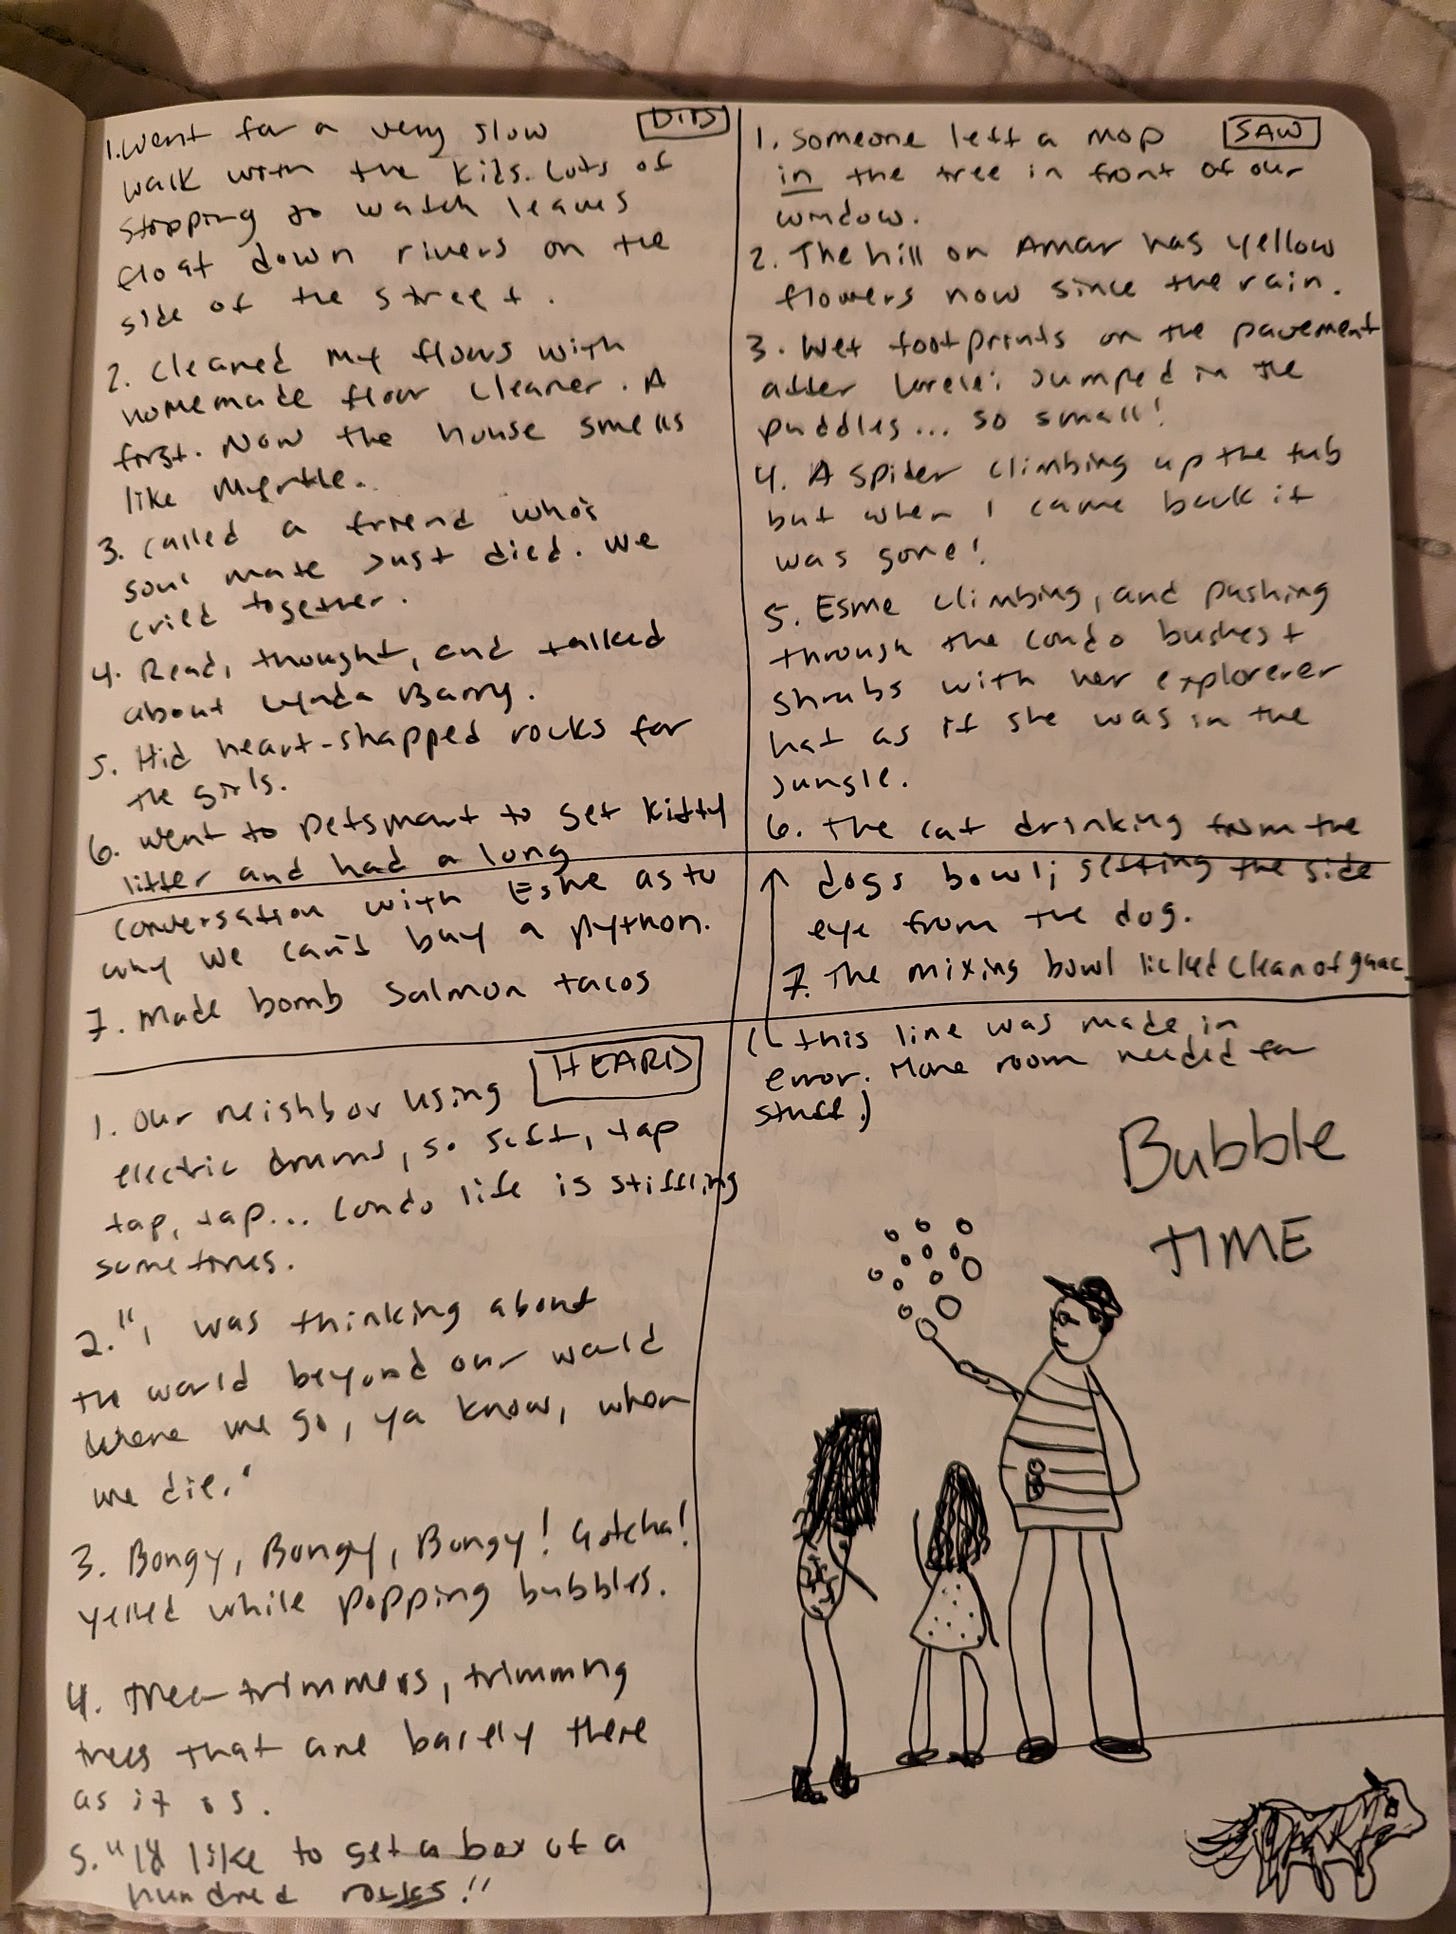 DID
1. Went for a very slow
walk with the kids. Lots of
stopping to watch leaves
float down rivers on the
side of the street.
2. Cleaned my floors with
homemade floor cleaner. A
first. Now the house smells
like Myrtle.
3. Called a friend who's
soul mate just died. We
cried together.
4. Read, thought, and talked
about Lynda Barry.
5. Hid heart-shapped rocks for
the girls.
6. Went to petsmart to get kitty
litter and had a long
conversation with Esme as to
why we can't buy a python.
7. Made bomb Salmon tacos
SAW
1. Someone left a mop
in the tree in front of our
window.
2. The hill on Amar has yellow
flowers now since the rain.
3. Wet footprints on the pavement
after Lorelei jumped in the
puddles... so small!
4. A spider climbing up the tub
but when I came back it
was gone!
5. Esme climbing, and pushing
through the condo bushes +
shrubs with her explorerer
hat as if she was in the
jungle.
6. The cat drinking from the
dogs bowl; getting the side
eye from the dog.
7. The mixing bowl licked clean of guac
(this line was made in
error. More room needed for
stuff.)
HEARD
1. Our neighbor using
electric drums, so soft, tap
tap, tap... Condo life is stiffling
sometimes.
2. "I was thinking about
the world beyond our world
where we go, ya know, when
we die."
3. Bongy, Bongy, Bongy! Gotcha!
yelled while popping bubbles.
4. Tree-trimmers, trimming
trees that are barely there
as it is.
5. "I'd like to get a box of a
hundred rocks!"
Bubble
TIME